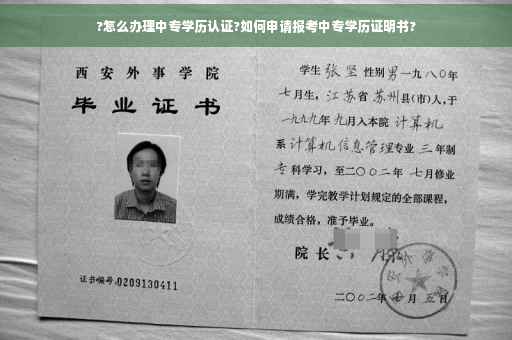 ?怎么办理中专学历认证?如何申请报考中专学历证明书?
西安外事学院
毕业证书
证书编号:0209130411
学生 张坚 性别 男 一九八〇年
七月生, 江苏省 苏州 县(市)人,于
一九九九年 九月入本院 计算机
系 计算机信息管理专业 三 年制
专 科学习, 至二〇〇二年 七月修业
期满, 学完教学计划规定的全部课程,
成绩合格, 准予毕业。
院长
二〇〇二年 月 五日